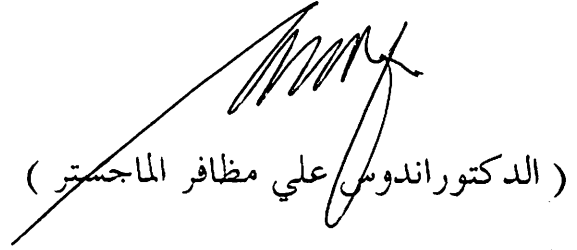 ( الدكتوراندوس علي مظافر الماجستر )